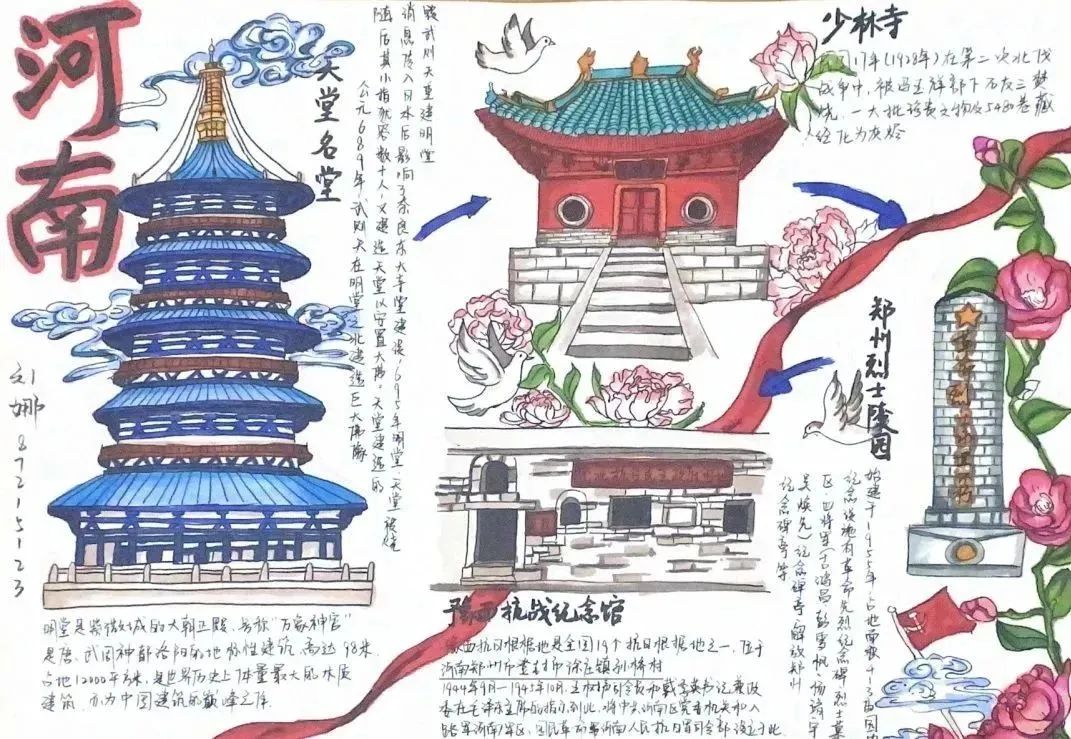 河南
天堂名堂
公元689年,武则天在明堂之北建造巨大佛像
随后其小指犹容数十人,又建造天堂以安置大佛。天堂建造的
消息传入日本后影响了奈良东大寺堂建设,695年明堂天堂被烧
毁武则天重建明堂
刘娜 87215123
明堂是紫微城的大朝正殿、号称"万象神宫"
是唐、武周神都洛阳的地标性建筑,高达98米,
占地12000平方米,是世界历史上体量最大的木质
建筑,亦为中国建筑的巅峰之作.
少林寺
17年(1928年)在第二次北伐
战争中,被冯玉祥部下石友三焚
烧,一大批珍贵文物及5480卷藏
经化为灰烬
郑州烈士陵园
始建于1955年,占地面积413亩园
纪念设施有革命先烈纪念碑,烈士墓
区,四将军(吉鸿昌,彭雪枫,杨靖宇
吴焕先)纪念碑亭,解放郑州
纪念碑亭等
豫西抗战纪念馆
豫西抗日根据地是全国19个抗日根据地之一,位于
河南郑州市登封市徐庄镇孙桥村
1944年9月-1945年10月,王树声司令员和戴季英书记兼政
委在毛泽东主席的指示到此,将中共河南区党委机关和八
路军河南军区、河南人民抗日军司令部设立于此